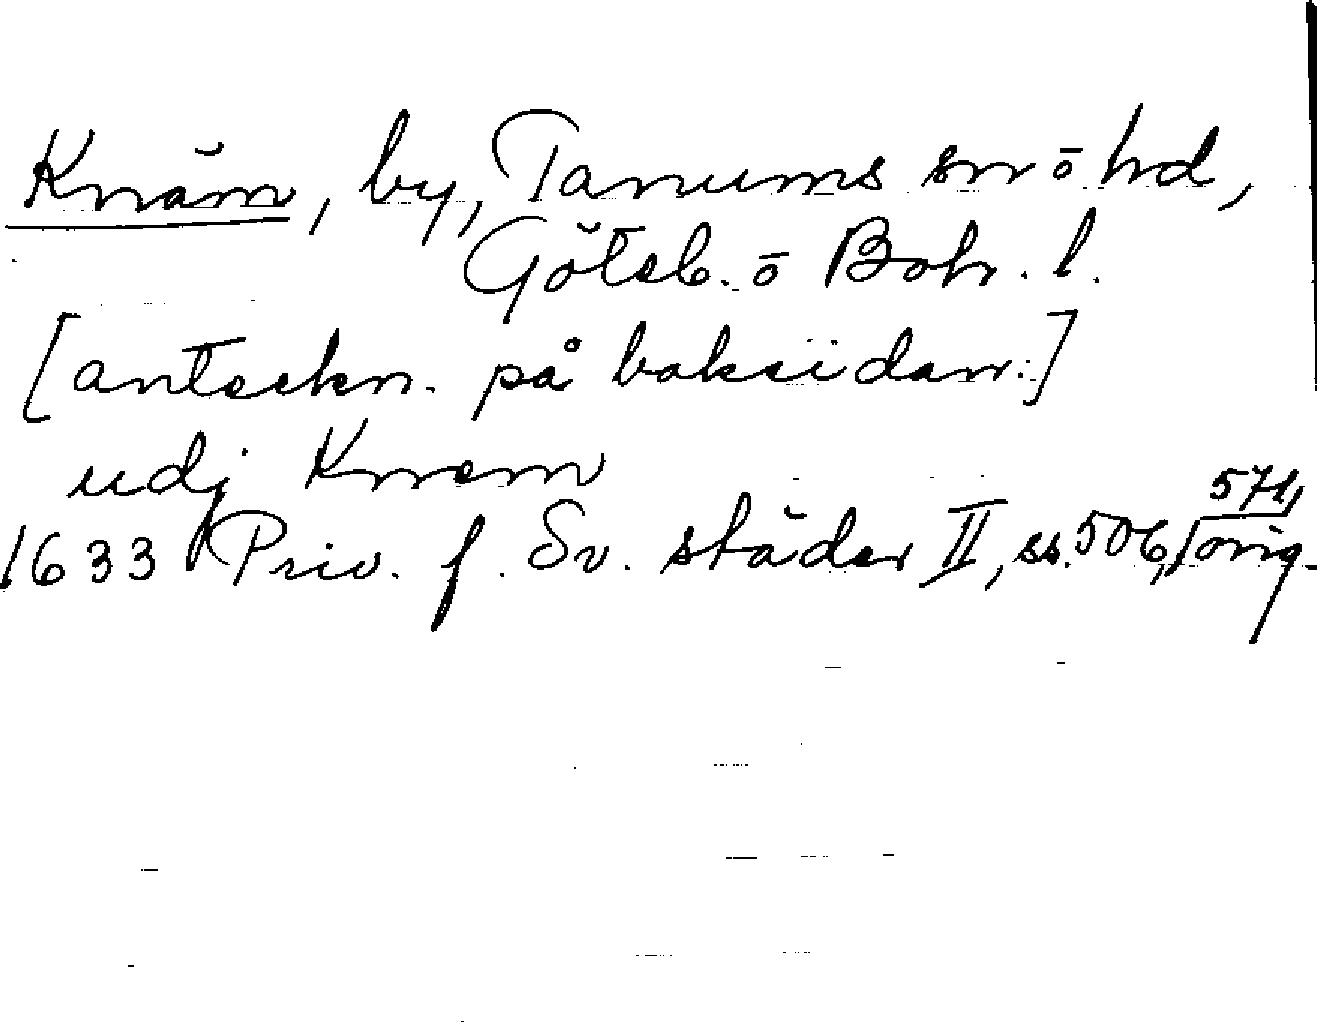 Knäm, by, Tanums sn ō hd,
Göteb. ō Boh. l.
[anteckn. på baksidan:]
udj Knem
1633 Priv. f. Sv. städer II, ss. 506, 571, orig.